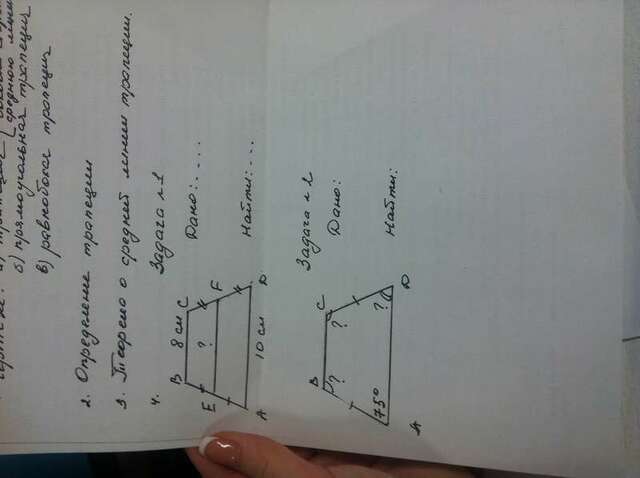 чертеже: а) трапеция
среднюю линию
б) прямоугольная трапеция
в) равнобокая трапеция
2. Определение трапеции
3. Теорема о средней линии трапеции.
4. Задача №1
B 8 см C
Дано: . . . .
E ? F
Найти: . . .
A 10 см D
Задача №2
B C
Дано:
? ?
75° ?
Найти:
A D